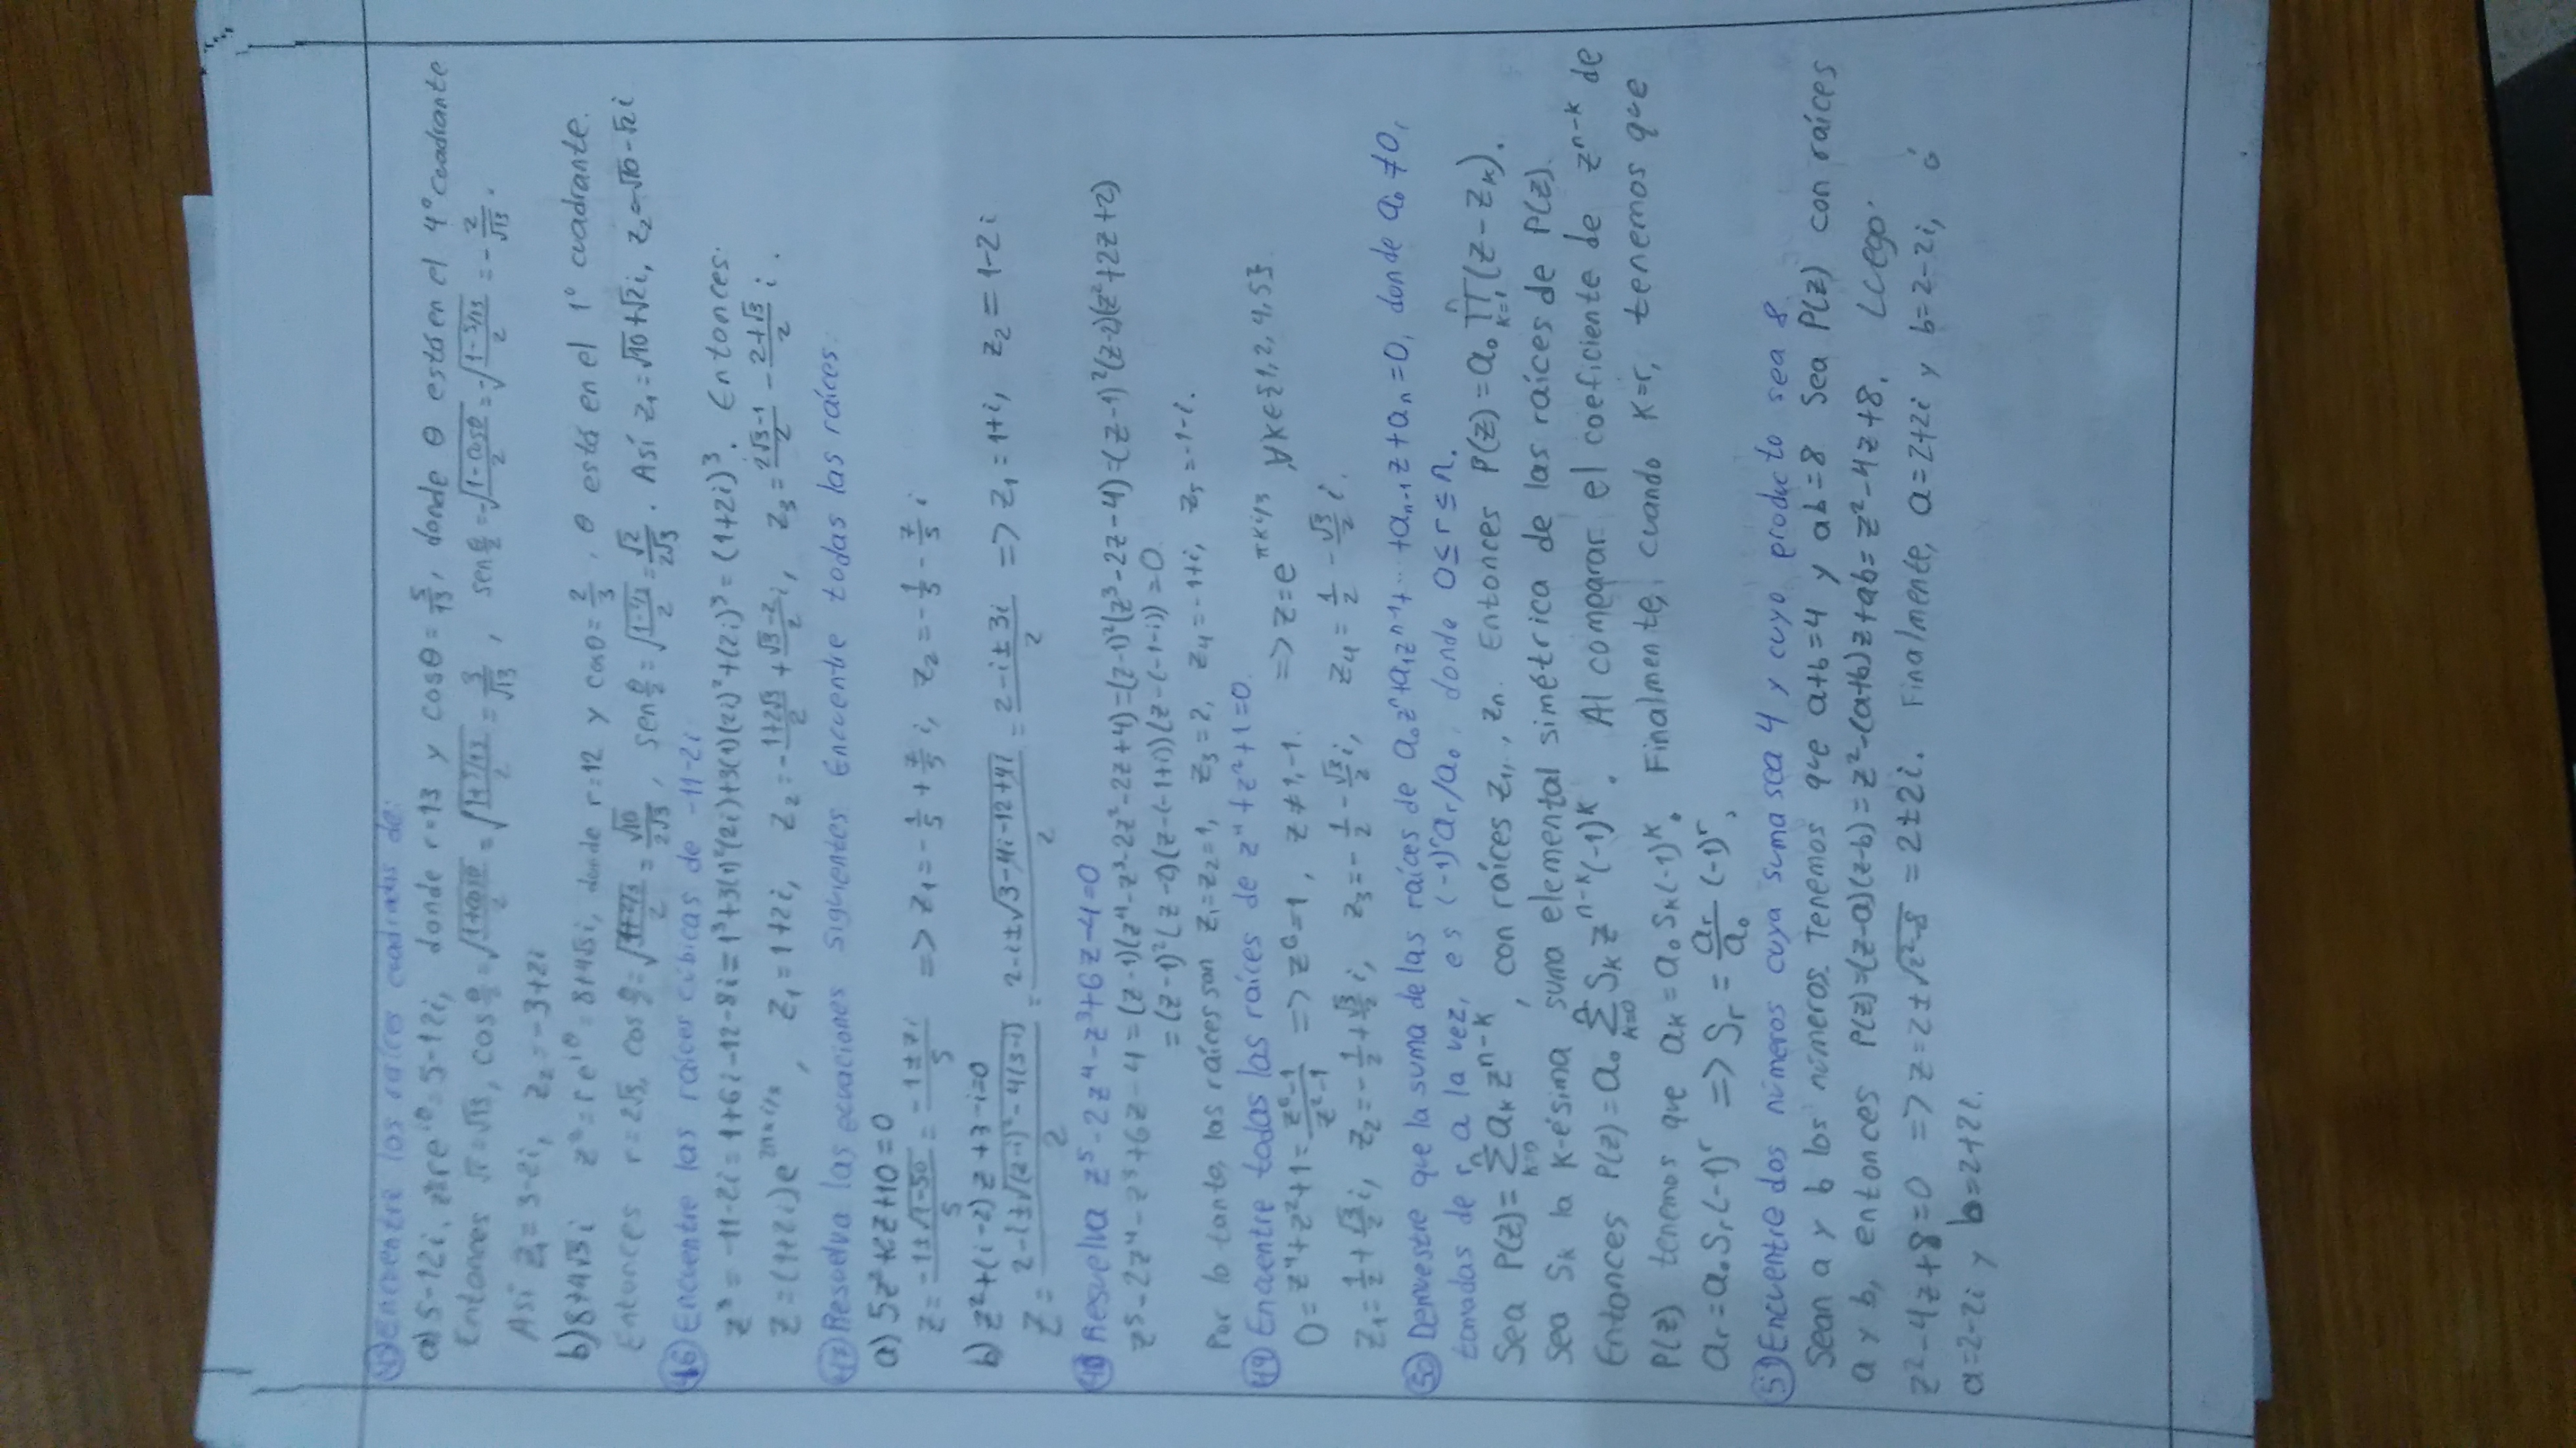 45) Encuentre las raíces cuadradas de:
a) 5-12i. z²=re^{iθ}=5-12i, donde r=13 y cosθ=5/13, donde θ está en el 4° cuadrante
Entonces √r=√13, cos θ/2=√((1+cosθ)/2)=√((1+5/13)/2)=3/√13, sen θ/2=-√((1-cosθ)/2)=-√((1-5/13)/2)=-2/√13.
Así z₁=3-2i, z₂=-3+2i
b) 8+4√5i z²=re^{iθ}=8+4√5i, donde r=12 y cosθ=2/3, θ está en el 1° cuadrante.
Entonces r=2√3, cos θ/2=√((1+2/3)/2)=√10/(2√3), sen θ/2=√((1-2/3)/2)=√2/(2√3). Así z₁=√10+√2i, z₂=-√10-√2i
46) Encuentre las raíces cúbicas de -11-2i
z³=-11-2i=1+6i-12-8i=1³+3(1)²(2i)+3(1)(2i)²+(2i)³=(1+2i)³. Entonces:
z=(1+2i)e^{2πki/3}, z₁=1+2i, z₂=-(1+2√3)/2+(√3-2)/2 i, z₃=(2√3-1)/2-(2+√3)/2 i.
47) Resuelva las ecuaciones siguientes. Encuentre todas las raíces:
a) 5z²+2z+10=0
z=(-1±√(1-50))/5=(-1±7i)/5 => z₁=-1/5+7/5 i, z₂=-1/5-7/5 i
b) z²+(i-2)z+3-i=0
z=(2-i±√((2-i)²-4(3-i)))/2=(2-i±√(3-4i-12+4i))/2=(2-i±3i)/2 => z₁=1+i, z₂=1-2i
48) Resuelva z⁵-2z⁴-z³+6z-4=0
z⁵-2z⁴-z³+6z-4=(z-1)(z⁴-z³-2z²-2z+4)=(z-1)²(z³-2z-4)=(z-1)²(z-2)(z²+2z+2)
=(z-1)²(z-2)(z-(-1+i))(z-(-1-i))=0
Por lo tanto, las raíces son z₁=z₂=1, z₃=2, z₄=-1+i, z₅=-1-i.
49) Encuentre todas las raíces de z⁴+z²+1=0.
0=z⁴+z²+1=(z⁶-1)/(z²-1) => z⁶=1, z≠1,-1. => z=e^{πki/3}, ∀k∈{1,2,4,5}
z₁=1/2+√3/2 i, z₂=-1/2+√3/2 i, z₃=-1/2-√3/2 i, z₄=1/2-√3/2 i.
50) Demuestre que la suma de las raíces de a₀zⁿ+a₁zⁿ⁻¹+...+aₙ₋₁z+aₙ=0, donde a₀≠0,
tomadas de r a la vez, es (-1)^r a_r/a₀, donde 0≤r≤n.
Sea P(z)=∑_{k=0}^{n} a_k z^{n-k}, con raíces z₁,.., zₙ. Entonces P(z)=a₀∏_{k=1}^{n}(z-z_k).
Sea S_k la k-ésima suma elemental simétrica de las raíces de P(z).
Entonces P(z)=a₀∑_{k=0}^{n} S_k z^{n-k}(-1)^k. Al comparar el coeficiente de z^{n-k} de
P(z) tenemos que a_k=a₀S_k(-1)^k. Finalmente, cuando k=r, tenemos que
a_r=a₀S_r(-1)^r => S_r=a_r/a₀ (-1)^r,
51) Encuentre dos números cuya suma sea 4 y cuyo producto sea 8.
Sean a y b los números. Tenemos que a+b=4 y ab=8 Sea P(z) con raíces
a y b, entonces P(z)=(z-a)(z-b)=z²-(a+b)z+ab=z²-4z+8. Luego:
z²-4z+8=0 => z=2±√(2²-8)=2±2i. Finalmente, a=2+2i y b=2-2i, ó
a=2-2i y b=2+2i.